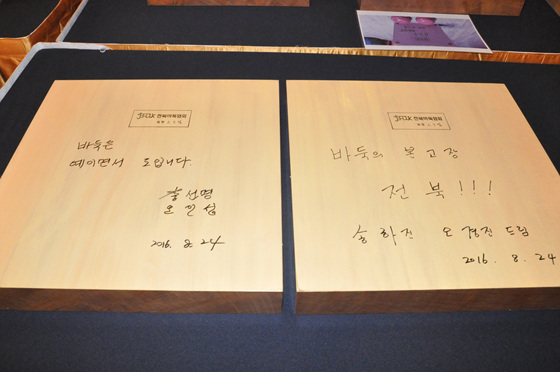 전북바둑협회
바둑은
예이면서 도입니다.
이선명
오인섭
2016. 8. 24
전북바둑협회
바둑의 본고장
전북!!!
송하진 오경진 드림
2016. 8. 24